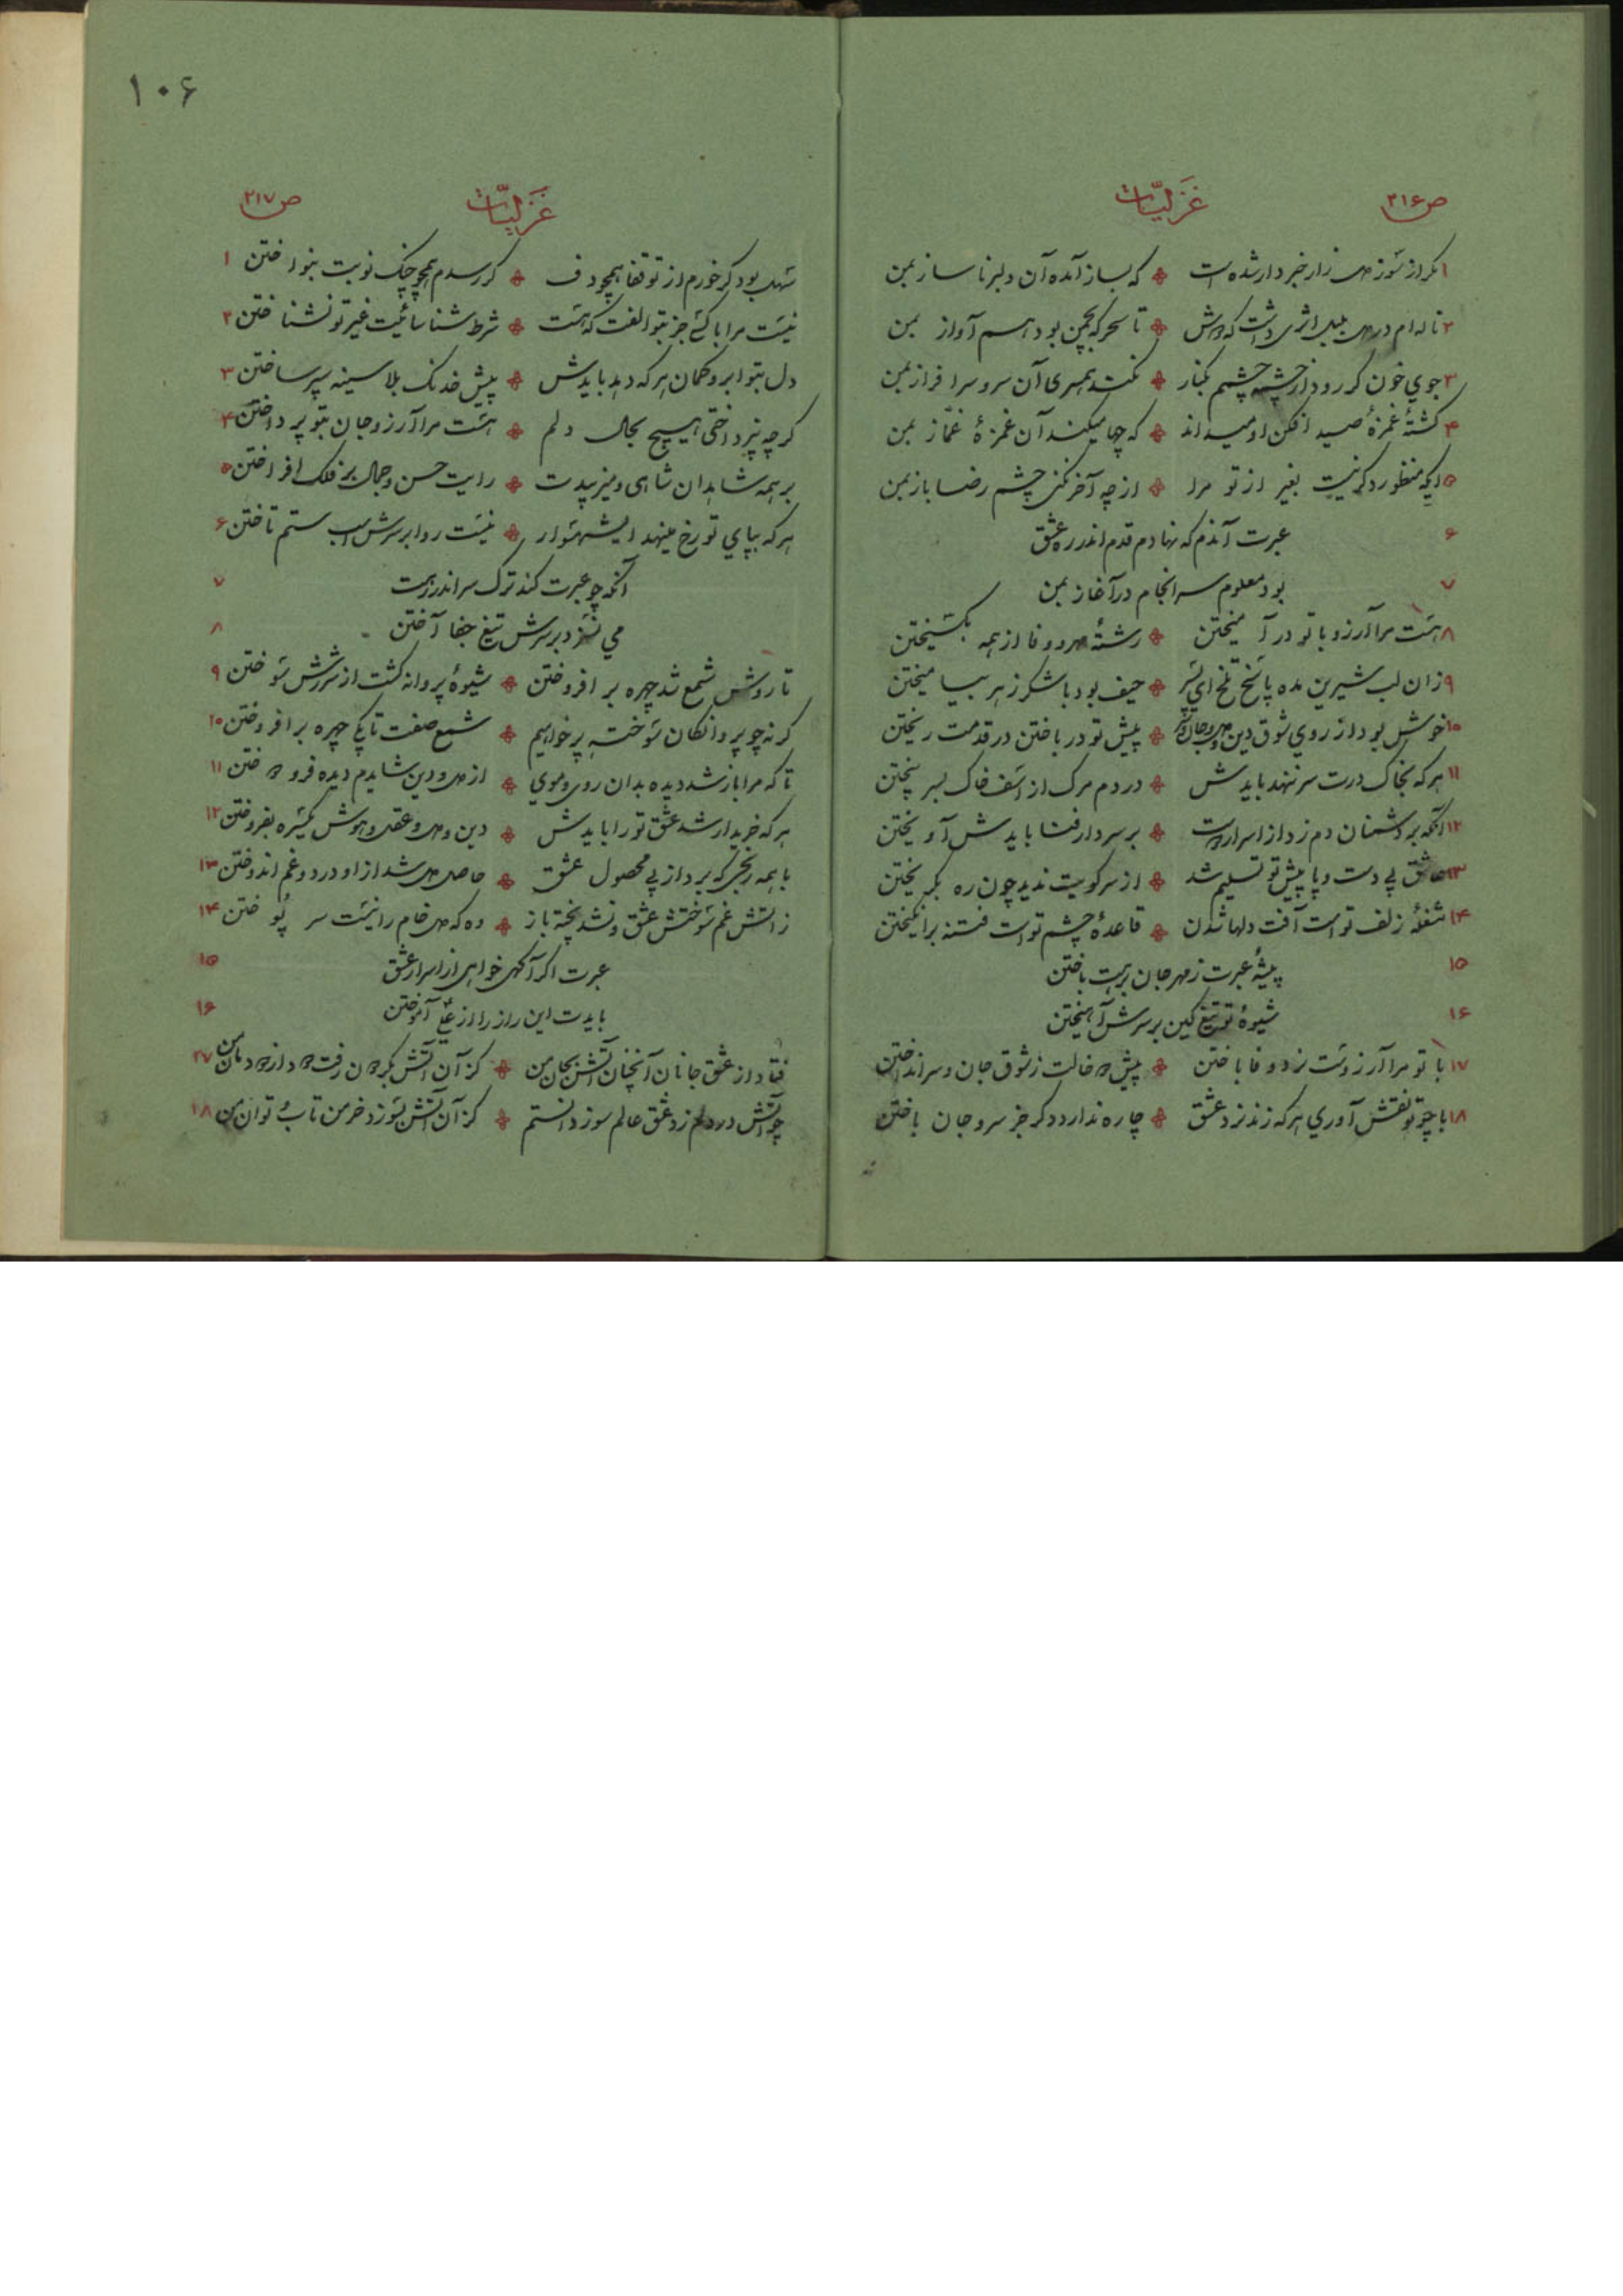 ص ۲۱۶ غَزلیّات
۱ مکر از سوز دل زار خبردار شده است ❊ که بساز آمده آن دلبر ناساز بمن
۲ ناله ام در دل بلبل اثری داشت که دوش ❊ تا سحرکه بچمن بود هم آواز بمن
۳ جوي خون کر رود از چشمه چشمم بکنار ❊ نکند همسری آن سرو سرافراز بمن
۴ کشتهٔ غمزهٔ صید افکن او میداند ❊ که چها میکند آن غمزهٔ غمّاز بمن
۵ ایکه منظور دکر نیست بغیر از تو مرا ❊ از چه آخر نکنی چشم رضا باز بمن
۶ عبرت آندم که نهادم قدم اندر ره عشق
۷ بود معلوم سرانجام در آغاز بمن
۸ هست مرا آرزو با تو درآمیختن ❊ رشتهٔ مهر و وفا از همه بکسیختن
۹ زان لب شیرین مده پاسخ تلخ ای پسر ❊ حیف بود با شکر زهر بیامیختن
۱۰ خوش بود از روي شوق دین و دل و جان و سر ❊ پیش تو درباختن در قدمت ریختن
۱۱ هرکه بخاک درت سر ننهد بایدش ❊ در دم مرک از اسف خاک بسر بیختن
۱۲ آنکه بر دشمنان دم زد از اسرار دوست ❊ بر سر دار فنا بایدش آویختن
۱۳ عاشق بی دست و پا پیش تو تسلیم شد ❊ از سر کویت ندید چون ره بکریختن
۱۴ شغلهٔ زلف تو است آفت دلها شدن ❊ قاعدهٔ چشم تو است فتنه برانکیختن
۱۵ پیشهٔ عبرت ز مهر جان برهت باختن
۱۶ شیوهٔ تو تیغ کین بر سرش آهیختن
۱۷ با تو مرا آرزوست نرد وفا باختن ❊ پیش خالت ز شوق جان و سر انداختن
۱۸ با چو تو نقش آوري هرکه زند نرد عشق ❊ چاره ندارد دکر جز سر و جان باختن
۱۰۶
ص ۲۱۷ غَزلیّات
سهل بود کر خورم از تو قفا همچو دف ❊ کر رسدم همچو چنک نوبت بنواختن ۱
نیست مرا با کسی جز بتو الفت که هست ❊ شرط شناسائیت غیر تو نشناختن ۲
دل بتو ابرو کمان هرکه دهد بایدش ❊ پیش خدنک بلا سینه سپر ساختن ۳
کرچه نپرداختی هیچ بحال دلم ❊ هست مرا آرزو جان بتو پرداختن ۴
بر همه شاهدان شاهی و میزیبدت ❊ رایت حسن و جمال بر فلک افراختن ۵
هرکه بپاي تو رخ مینهد ایشهسوار ❊ نیست روا بر سرش اسب ستم تاختن ۶
آنکه چو عبرت کند ترک سر اندر رهت ۷
مي نسزد بر سرش تیغ جفا آختن ۸
تا روش شمع شد چهره برافروختن ❊ شیوهٔ پروانه کشت از شررش سوختن ۹
کرنه چو پروانکان سوخته پر خواهیم ❊ شمع صفت تا بکی چهره برافروختن ۱۰
تا که مرا باز شد دیده بدان روی و موي ❊ از دل و دین شایدم دیده فرودوختن ۱۱
هرکه خریدار شد عشق تو را بایدش ❊ دین و دل و عقل و هوش یکسره بفروختن ۱۲
با همه رنجی که برد از پی محصول عشق ❊ حاصل دل شد از او درد و غم اندوختن ۱۳
ز آتش غم سوختش عشق و نشد پخته باز ❊ وه که دل خام را نیست سر پوختن ۱۴
عبرت اکر آکهی خواهی از اسرار عشق ۱۵
بایدت این راز را از علی آموختن ۱۶
فتاد از عشق جانان آنچنان آتش بجان من ❊ کز آن آتش بکردون رفت دود از دودمان من ۱۷
چو آتش در دلم زد عشق عالم سوز دانستم ❊ کز آن آتش بسوزد خرمن تاب و توان من ۱۸